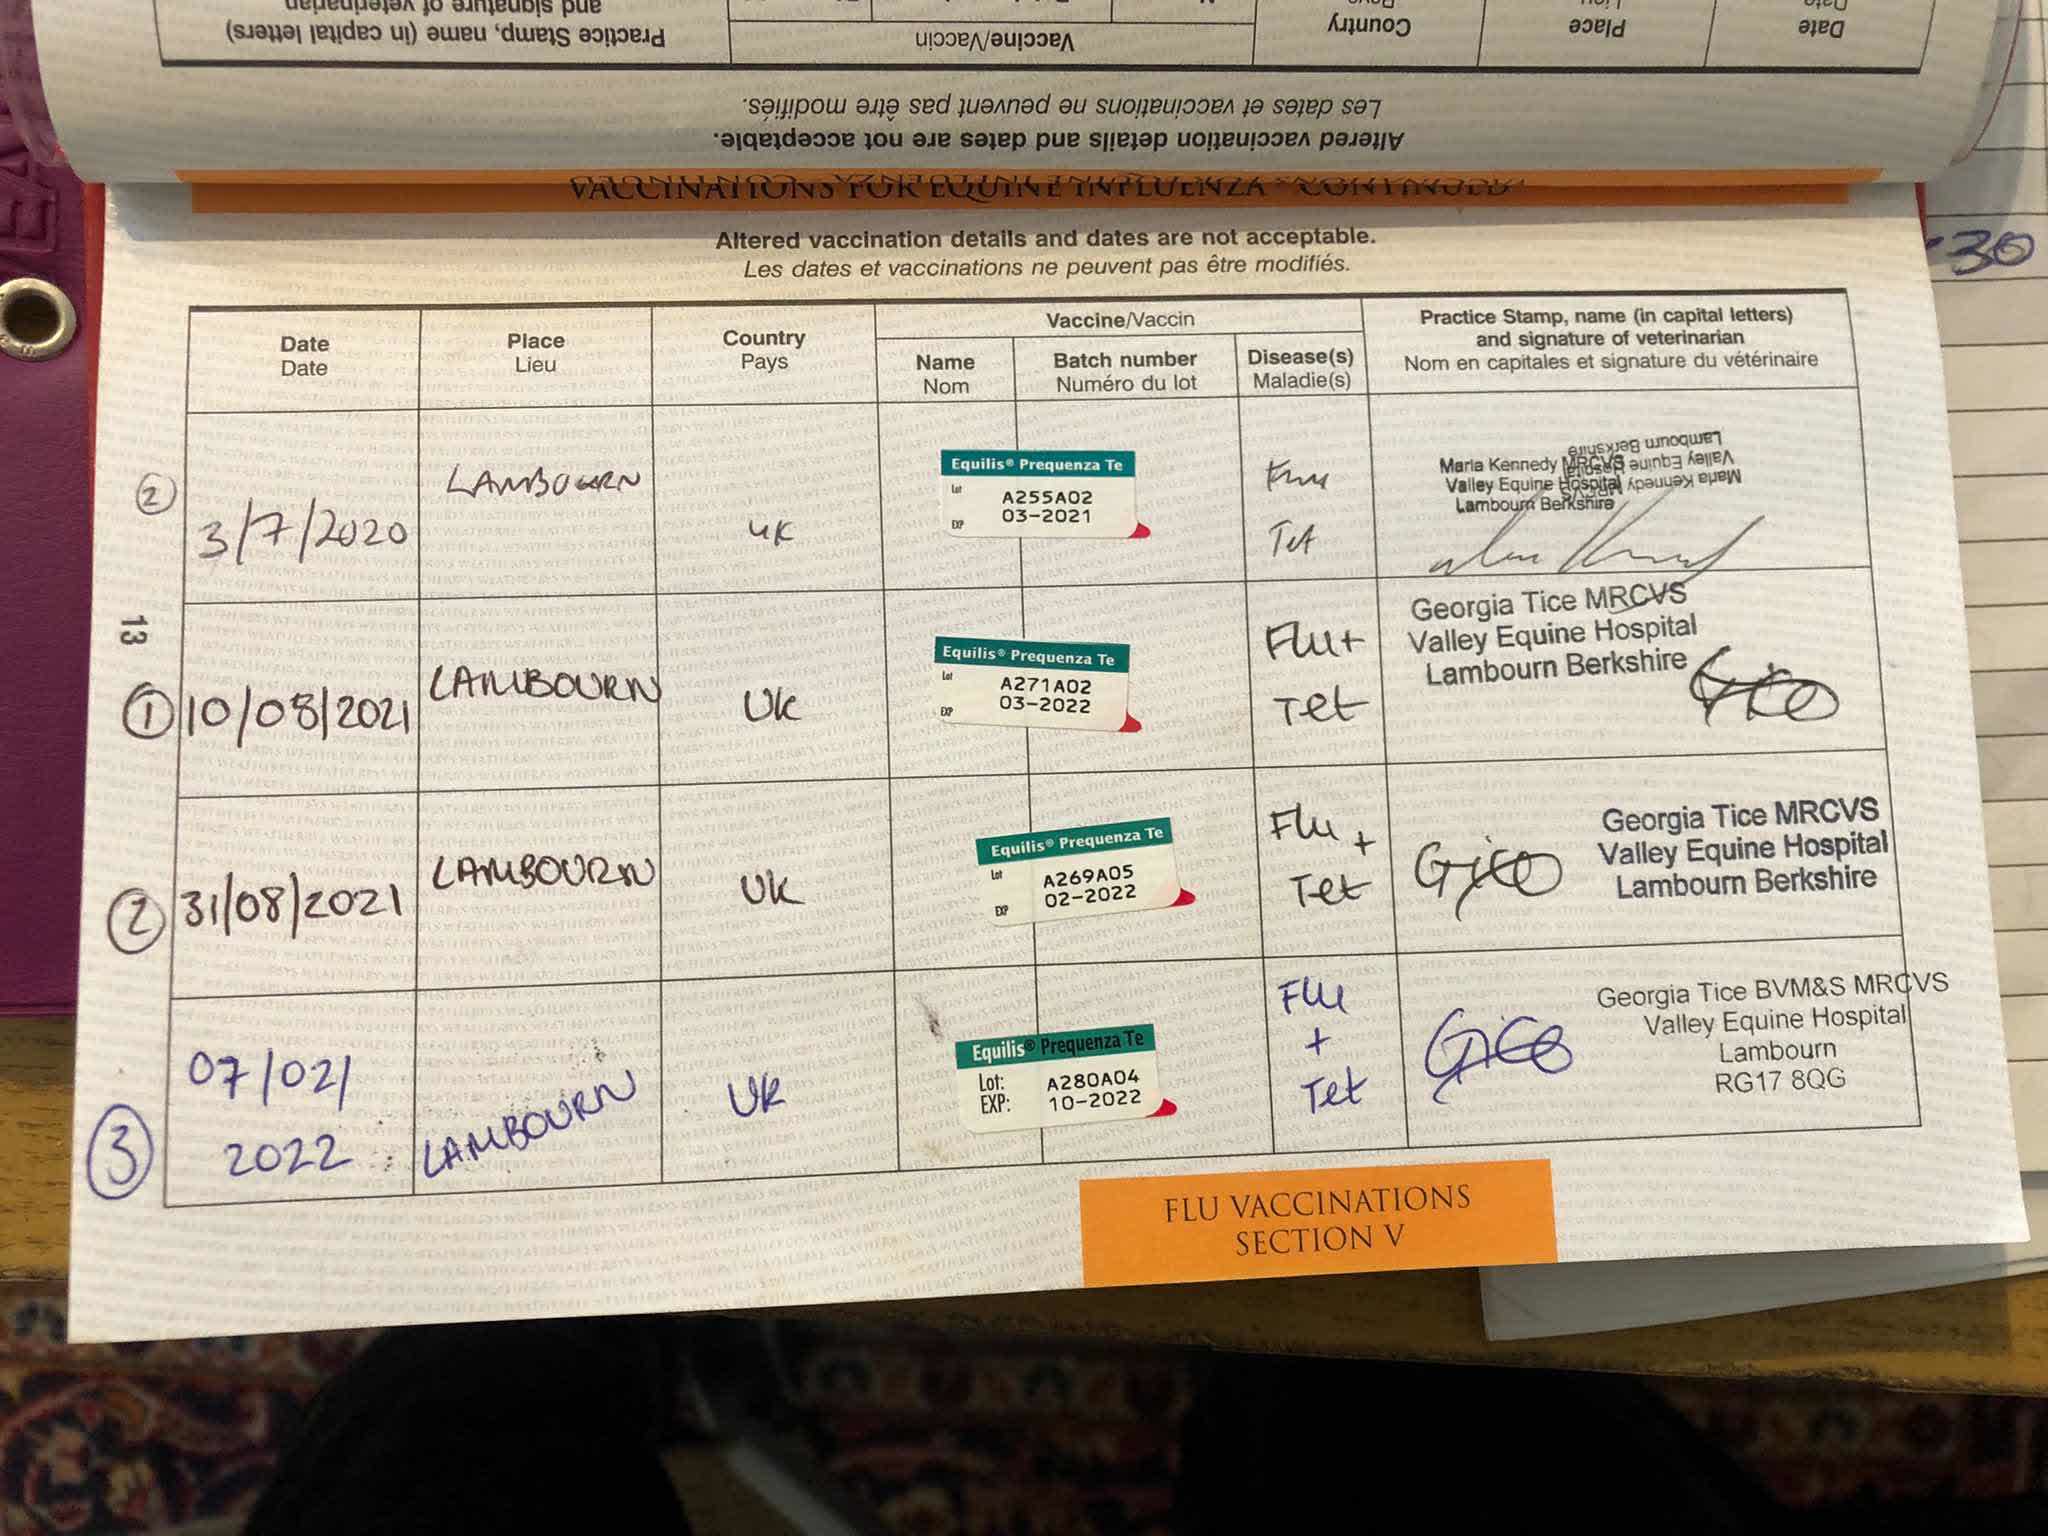 and signature of veterinarian
Practice Stamp, name (in capital letters)
Vaccine/Vaccin
Country
Place
Date
Les dates et vaccinations ne peuvent pas être modifiés.
Altered vaccination details and dates are not acceptable.
VACCINATIONS FOR EQUINE INFLUENZA - CONTINUED
30
Altered vaccination details and dates are not acceptable.
Les dates et vaccinations ne peuvent pas être modifiés.
Date
Date
Place
Lieu
Country
Pays
Vaccine/Vaccin
Name
Nom
Batch number
Numéro du lot
Disease(s)
Maladie(s)
Practice Stamp, name (in capital letters)
and signature of veterinarian
Nom en capitales et signature du vétérinaire
2
3/7/2020
LAMBOURN
UK
Equilis® Prequenza Te
Lot A255A02
EXP 03-2021
Flu
Tet
Maria Kennedy MRCVS
Valley Equine Hospital
Lambourn Berkshire
Maria Kennedy MRCVS
Valley Equine Hospital
Lambourn Berkshire
13
1
10/08/2021
LAMBOURN
UK
Equilis® Prequenza Te
Lot A271A02
EXP 03-2022
Flu+
Tet
Georgia Tice MRCVS
Valley Equine Hospital
Lambourn Berkshire
2
31/08/2021
LAMBOURN
UK
Equilis® Prequenza Te
Lot A269A05
EXP 02-2022
Flu +
Tet
Georgia Tice MRCVS
Valley Equine Hospital
Lambourn Berkshire
3
07/02/
2022
LAMBOURN
UK
Equilis® Prequenza Te
Lot: A280A04
EXP: 10-2022
Flu
+
Tet
Georgia Tice BVM&S MRCVS
Valley Equine Hospital
Lambourn
RG17 8QG
FLU VACCINATIONS
SECTION V